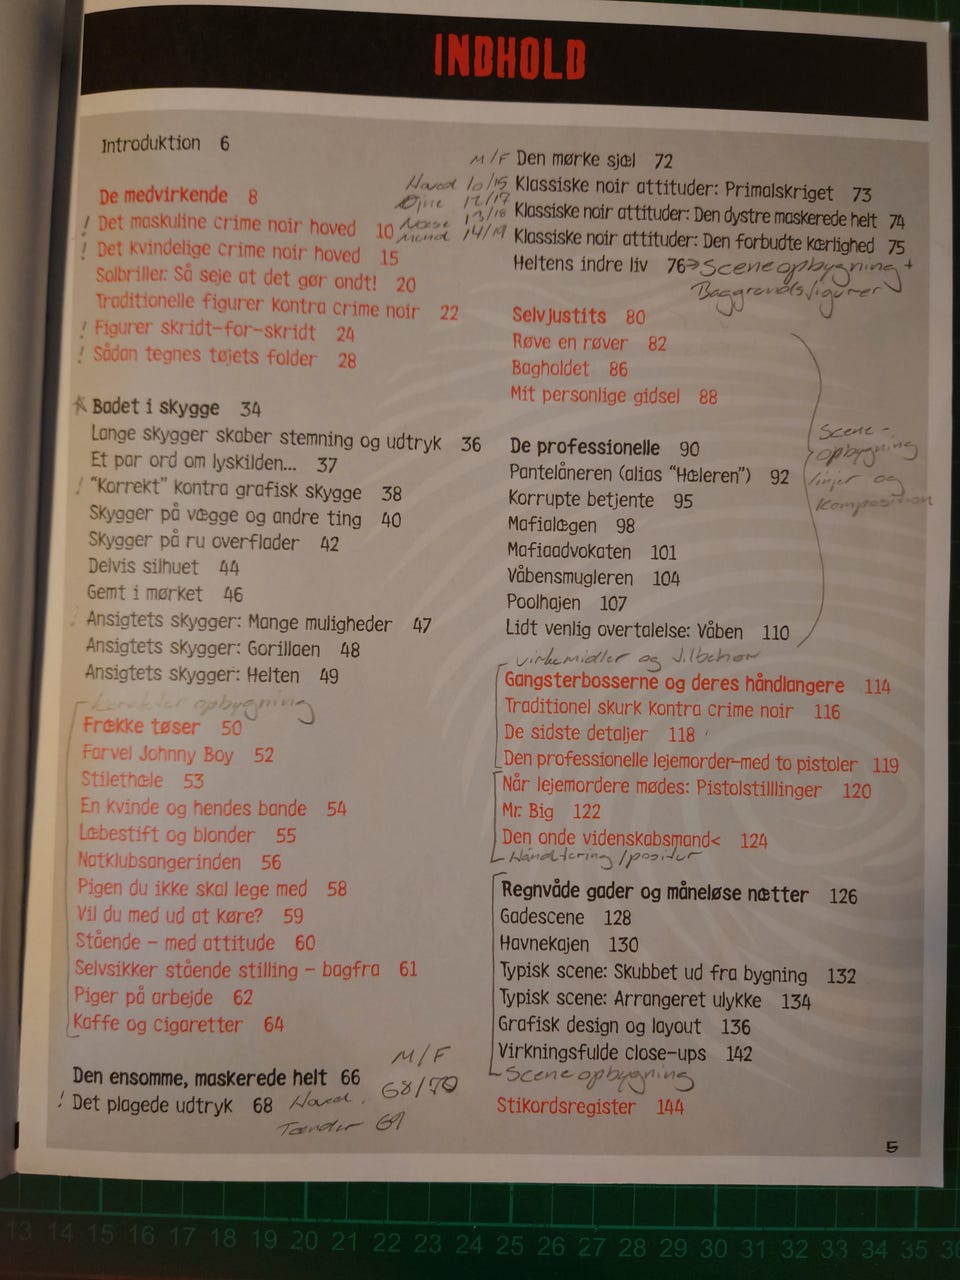 INDHOLD
Introduktion 6
De medvirkende 8
! Det maskuline crime noir hoved 10
! Det kvindelige crime noir hoved 15
Solbriller: Så seje at det gør ondt! 20
Traditionelle figurer kontra crime noir 22
! Figurer skridt-for-skridt 24
! Sådan tegnes tøjets folder 28
M/F
Hoved 10/15
Øjne 12/17
Næse 13/18
Mund 14/19
Badet i skygge 34
Lange skygger skaber stemning og udtryk 36
Et par ord om lyskilden... 37
! "Korrekt" kontra grafisk skygge 38
Skygger på vægge og andre ting 40
Skygger på ru overflader 42
Delvis silhuet 44
Gemt i mørket 46
Ansigtets skygger: Mange muligheder 47
Ansigtets skygger: Gorillaen 48
Ansigtets skygger: Helten 49
Karakter opbygning
Frække tøser 50
Farvel Johnny Boy 52
Stilethæle 53
En kvinde og hendes bande 54
Læbestift og blonder 55
Natklubsangerinden 56
Pigen du ikke skal lege med 58
Vil du med ud at køre? 59
Stående - med attitude 60
Selvsikker stående stilling - bagfra 61
Piger på arbejde 62
Kaffe og cigaretter 64
Den ensomme, maskerede helt 66
! Det plagede udtryk 68
M/F
Hoved 68/70
Tænder 69
Den mørke sjæl 72
Klassiske noir attituder: Primalskriget 73
Klassiske noir attituder: Den dystre maskerede helt 74
Klassiske noir attituder: Den forbudte kærlighed 75
Heltens indre liv 76 → Sceneopbygning +
Baggrundsfigurer
Selvjustits 80
Røve en røver 82
Bagholdet 86
Mit personlige gidsel 88
De professionelle 90
Pantelåneren (alias "Hæleren") 92
Korrupte betjente 95
Mafialægen 98
Mafiaadvokaten 101
Våbensmugleren 104
Poolhajen 107
Lidt venlig overtalelse: Våben 110
Scene-
opbygning
linjer og
komposition
virkemidler og tilbehør
Gangsterbosserne og deres håndlangere 114
Traditionel skurk kontra crime noir 116
De sidste detaljer 118
Den professionelle lejemorder-med to pistoler 119
Når lejemordere mødes: Pistolstilllinger 120
Mr. Big 122
Den onde videnskabsmand< 124
Håndtering/positur
Regnvåde gader og måneløse nætter 126
Gadescene 128
Havnekajen 130
Typisk scene: Skubbet ud fra bygning 132
Typisk scene: Arrangeret ulykke 134
Grafisk design og layout 136
Virkningsfulde close-ups 142
Sceneopbygning
Stikordsregister 144
5
13 14 15 16 17 18 19 20 21 22 23 24 25 26 27 28 29 30 31 32 33 34 35